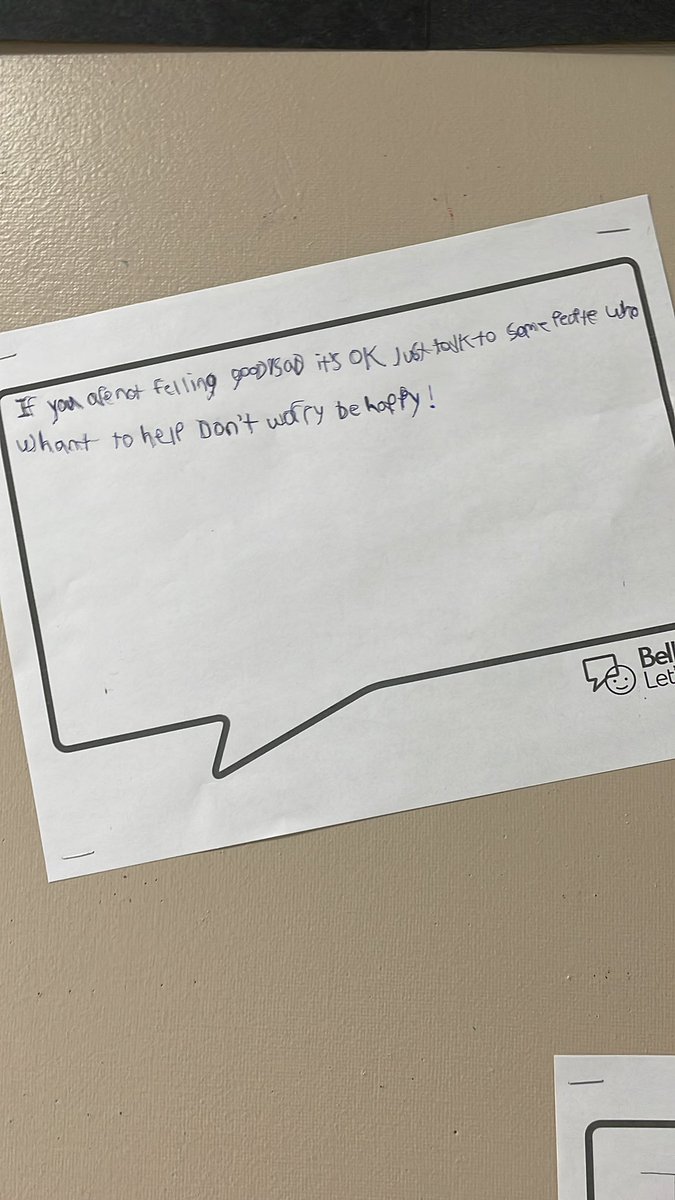 If you are not Felling good/sad it's OK Just talk to some People who
whant to help Don't worry be happy!
Bell
Let'